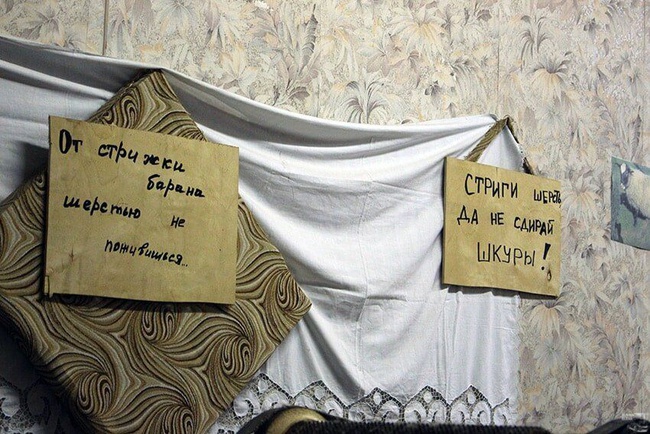 От стрижки
барана
шерстью не
поживишься...
СТРИГИ шерсть
ДА НЕ СДИРАЙ
ШКУРЫ!